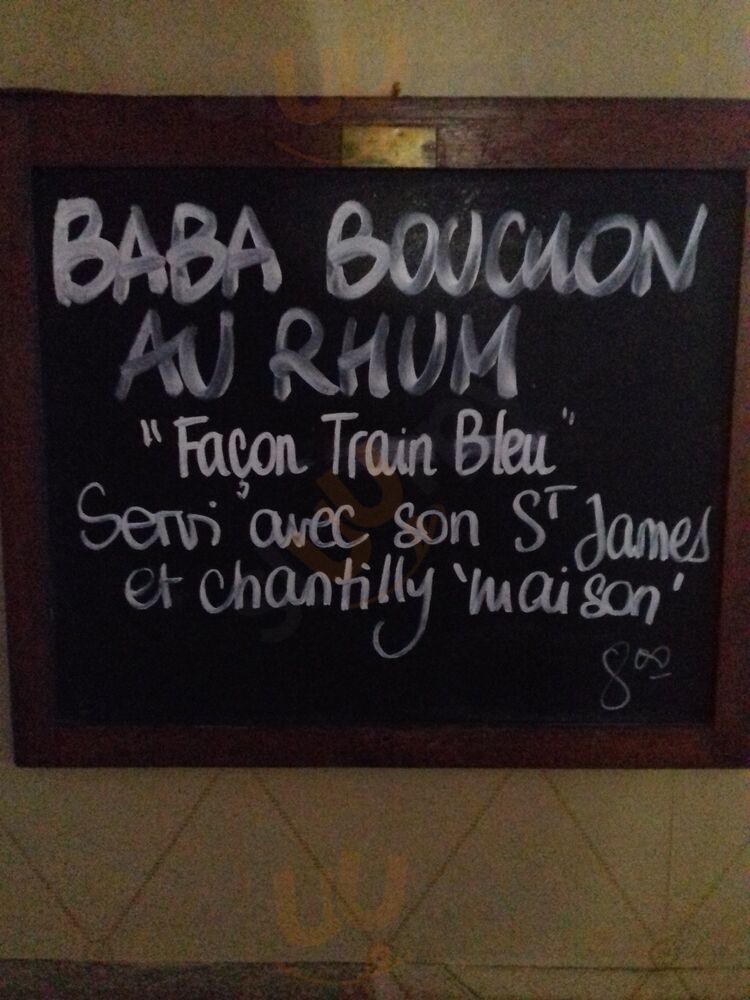 BABA BOUCHON
AU RHUM
"Façon Train Bleu"
Servi avec son ST James
et chantilly 'maison'
8°°